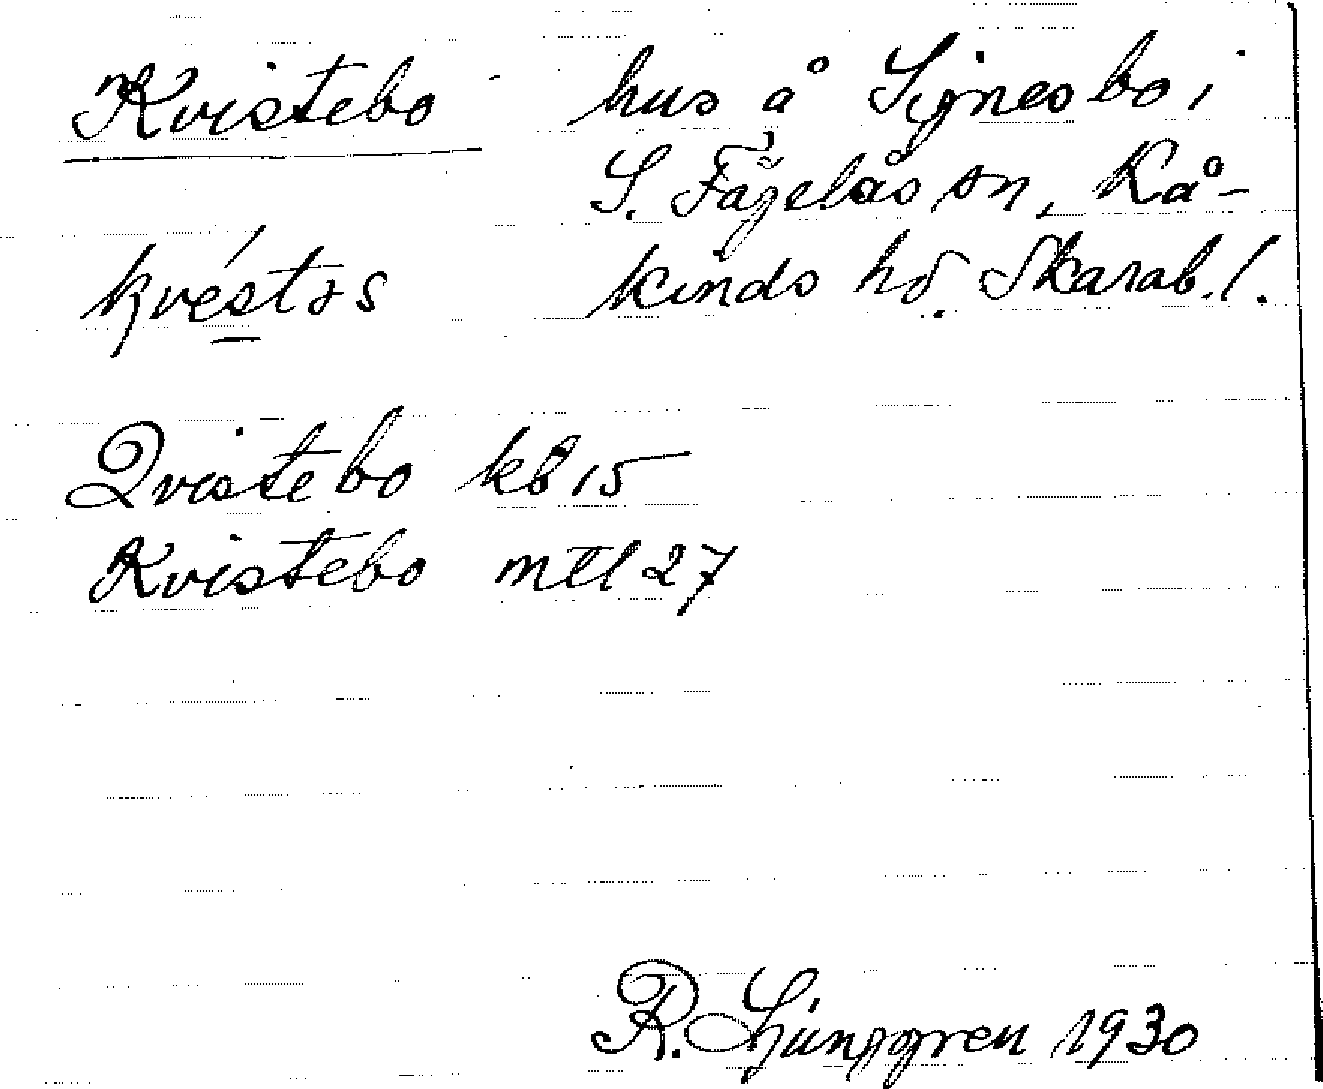 Kvistebo hus å Signesbo i
S. Fågelås sn, Kå-
kvéstəs kinds hd. Skarab. l.
Qvistebo kb 15
Kvistebo mtl 27
R. Ljunggren 1930